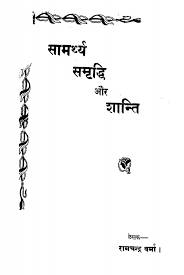 सामर्थ्य
समृद्धि
और
शान्ति
लेखक—
रामचन्द्र वर्मा ।